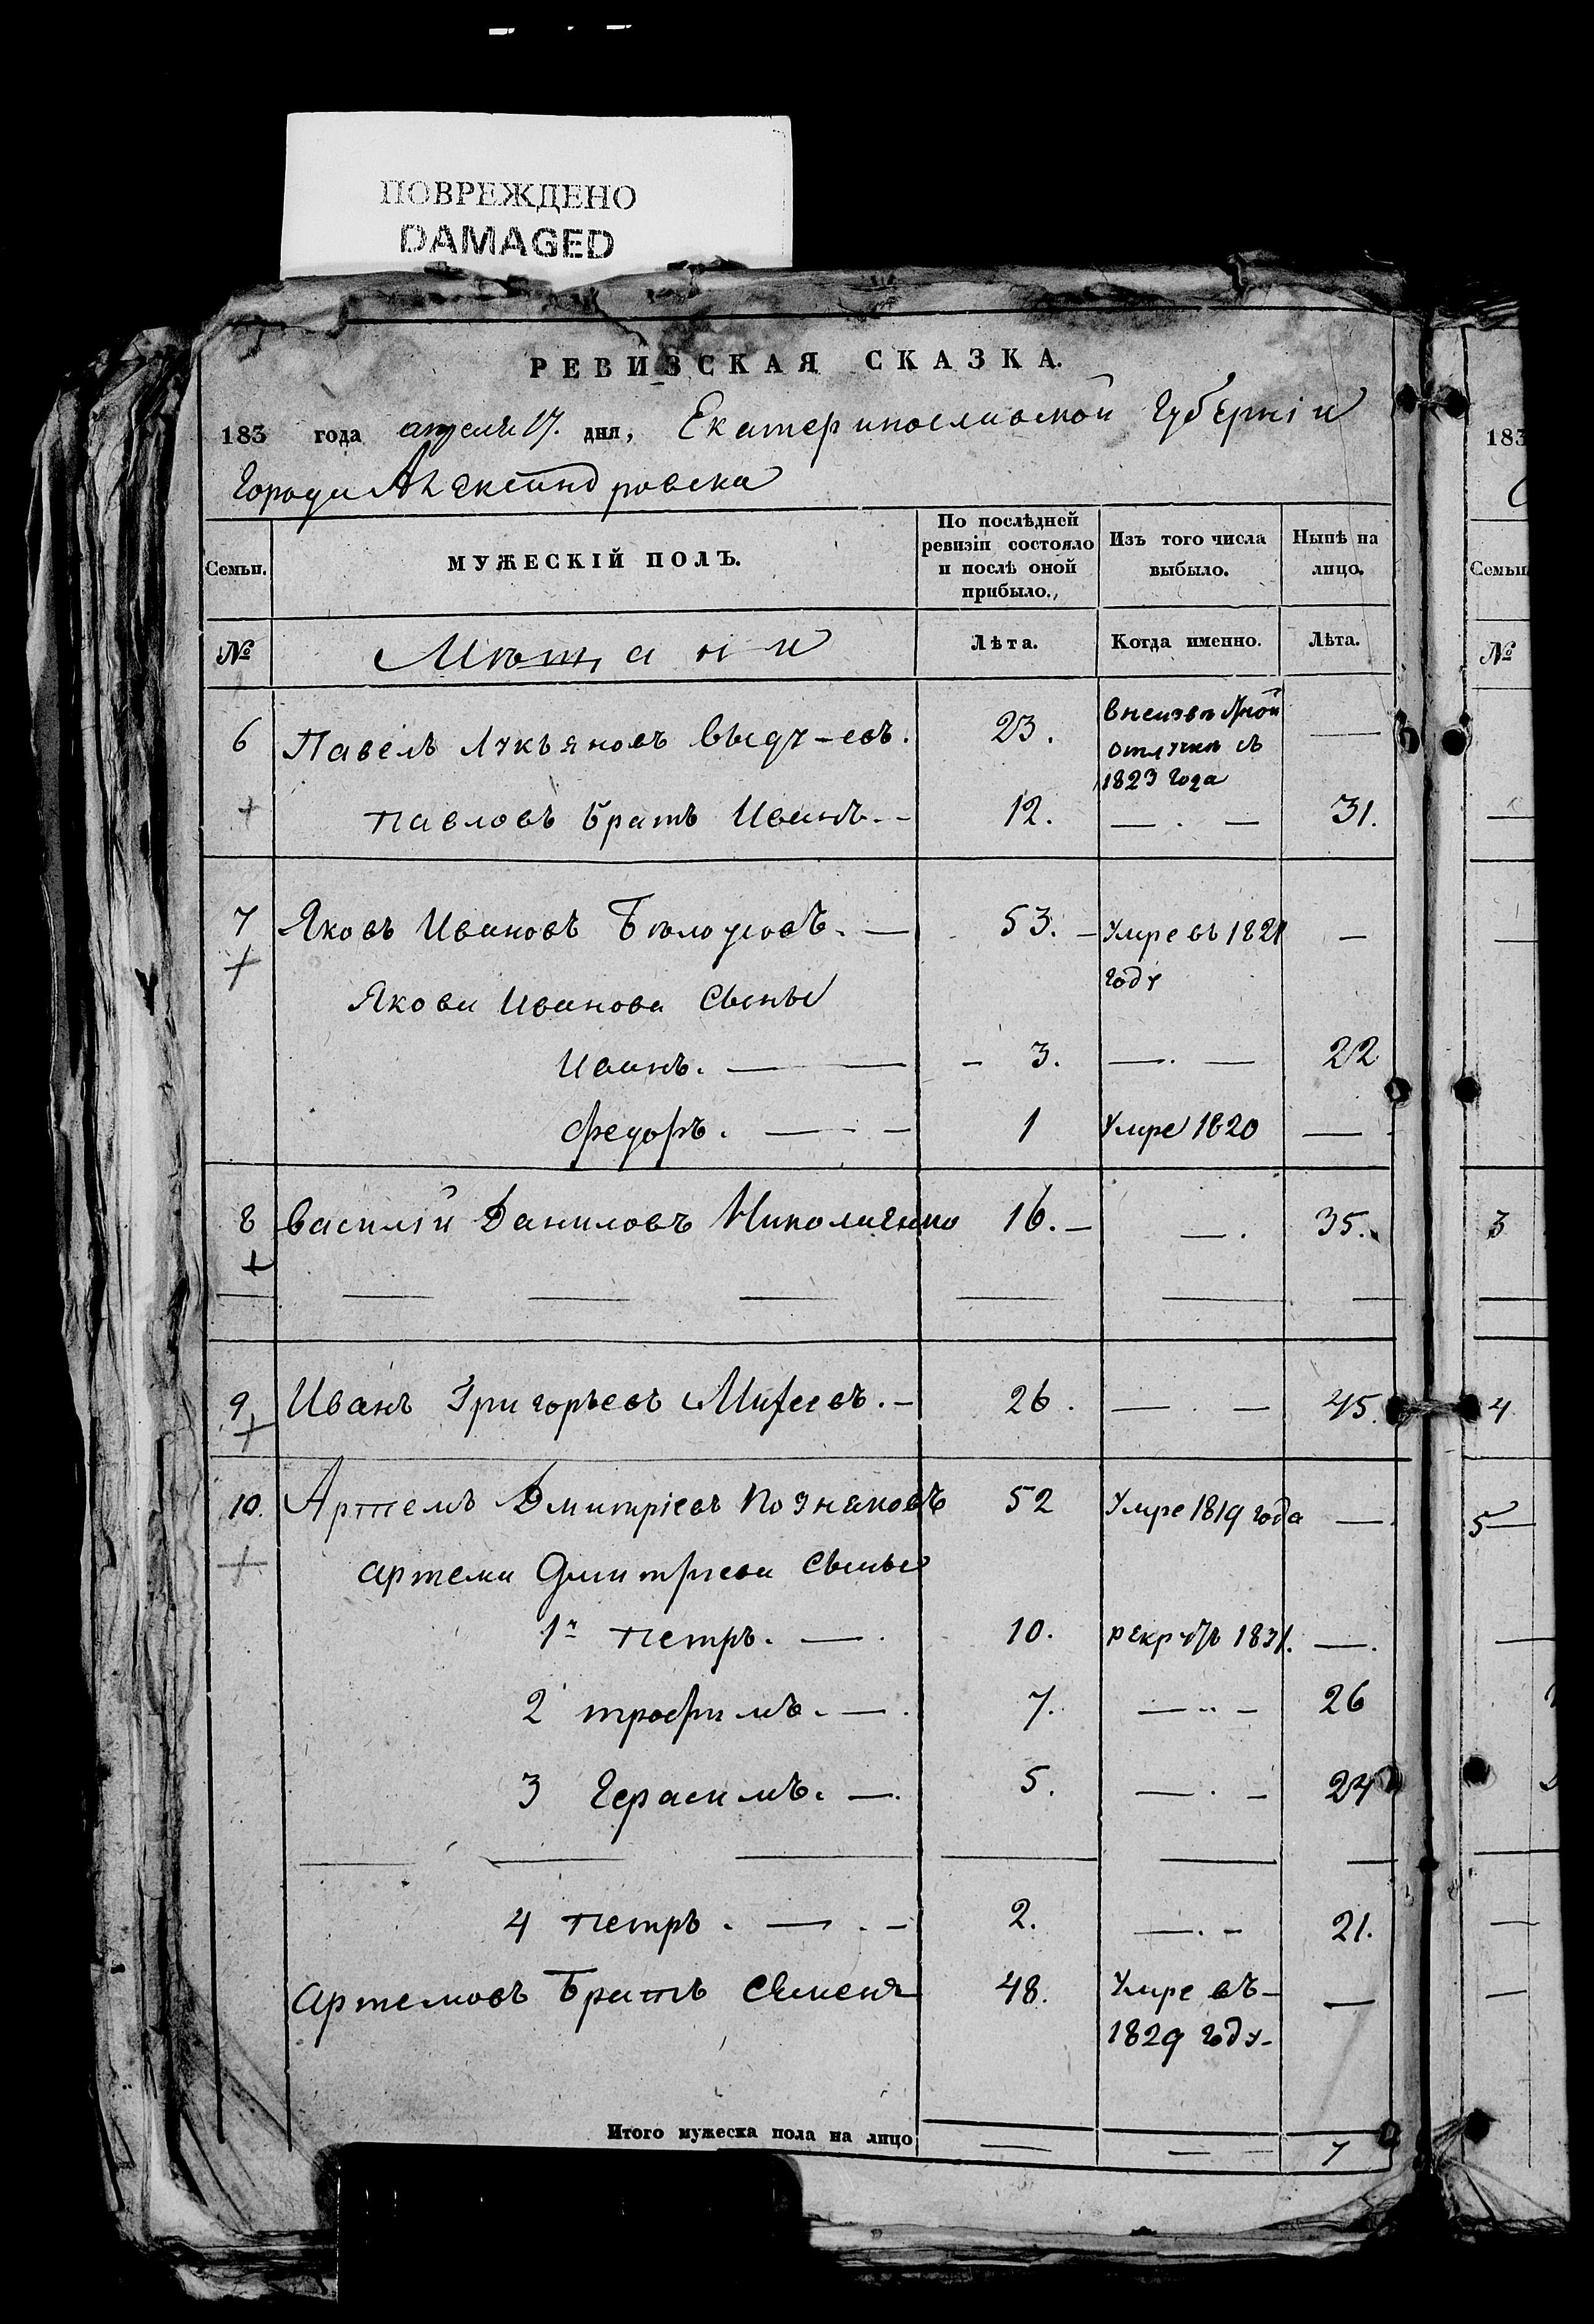 ПОВРЕЖДЕНО
DAMAGED
РЕВИЗСКАЯ СКАЗКА.
183 года апреля 17. дня, Екатеринославской Губерніи
Города Александровска
Семьи. МУЖЕСКІЙ ПОЛЪ. По послѣдней ревизіи состояло и послѣ оной прибыло. Изъ того числа выбыло. Нынѣ на лицо.
№ Мѣщани Лѣта. Когда именно. Лѣта.
6 Павелъ Лукьяновъ 23. в неизвѣстной отлучкѣ съ 1823 года —
Павловъ братъ Иванъ. - 12. — . — 31.
7 Яковъ Ивановъ Бѣлоусовъ. — 53. — Умре въ 1821 году —
Якова Иванова сыны
Иванъ. — — - 3. — . — 22
Федоръ. — - — 1 Умре 1820 —
8 Василій Даниловъ Николаенко 16. — — . 35.
9 Иванъ Григорьевъ Михеевъ. — 26. — . — 45.
10. Артемъ Дмитріевъ Позняковъ 52 Умре 1819 года —
Артема Дмитріева сыны
1й Петръ. — . 10. рекрутъ 1831. — .
2 Трофимъ. — . 7. — .. — 26
3 Герасимъ. — . 5. — . — 24
4 Петръ. — . — 2. — . — 21.
Артемовъ Братъ Семенъ 48. Умре въ 1829 году — —
Итого мужеска пола на лицо — — — 7
183
Семьи
№
3
4
5